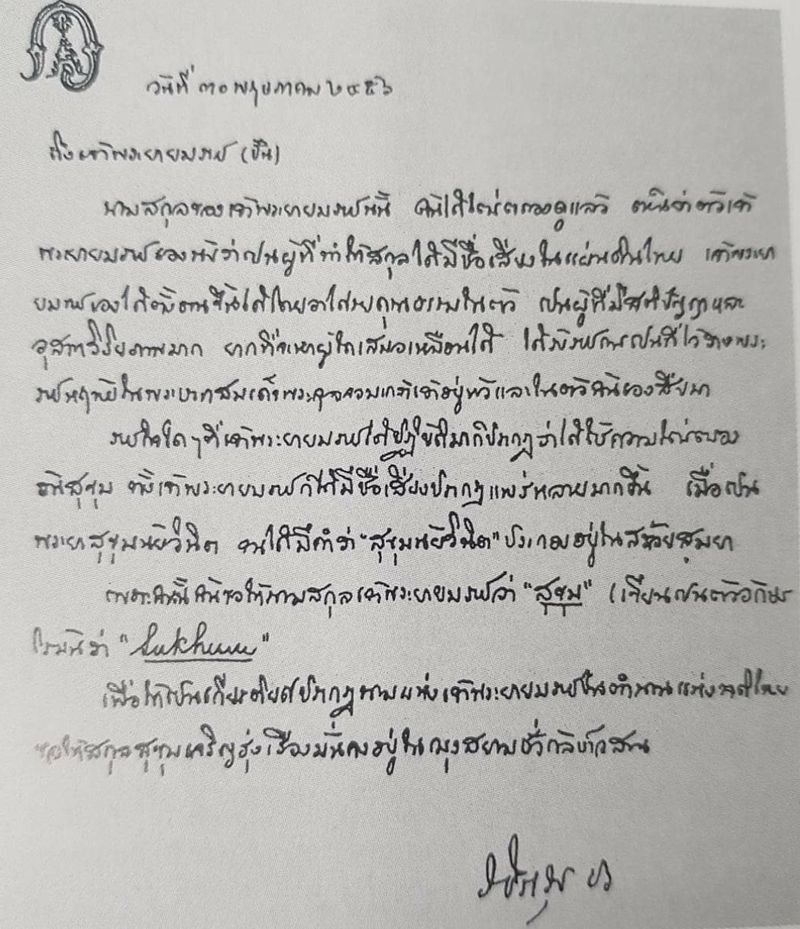 วันที่ ๓๐ พฤษภาคม ๒๔๕๖
ถึง เจ้าพระยายมราช (ปั้น)
นามสกุลของเจ้าพระยายมราชนั้น ฉันได้ใคร่ตรองดูแล้ว เห็นว่าตัวเจ้า
พระยายมราชเองนับว่าเปนผู้ที่ทำให้สกุลได้มีชื่อเสียงในแผ่นดินไทย เจ้าพระยา
ยมราชเองได้ตั้งตนขึ้นได้โดยอาไศรยคุณธรรมในตัว เปนผู้ที่มีสติปัญญาและ
อุสาหวิริยภาพมาก ยากที่จะหาผู้ใดเสมอเหมือนได้ ได้รับราชการเปนที่ไว้วางพระ
ราชหฤทัยในพระบาทสมเด็จพระจุลจอมเกล้าเจ้าอยู่หัวและในตัวฉันเองสืบมา
ราชกิจใดๆ ที่เจ้าพระยายมราชได้ปฏิบัติมาก็ปรากฏว่าได้ใช้ความใคร่ตรอง
อันสุขุม ทั้งเจ้าพระยายมราชก็ได้มีชื่อเสียงปรากฏแพร่หลายมากขึ้น เมื่อเปน
พระยาสุขุมนัยวินิต จนได้มีคำว่า "สุขุมนัยวินิต" ประกอบอยู่ในสร้อยสมยา
เพราะฉนั้นฉันขอให้นามสกุลเจ้าพระยายมราชว่า "สุขุม" (เขียนเปนตัวอักษร
โรมันว่า "Sukhum"
เพื่อให้เปนเกียรติยศปรากฏนามแห่งเจ้าพระยายมราชในตำนานแห่งชาติไทย
ขอให้สกุลสุขุมเจริญรุ่งเรืองมั่นคงอยู่ในกรุงสยามชั่วกัลปาวสาน